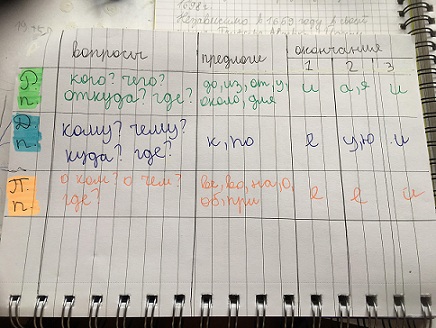 1698г.
вопросы предлоги окончания
1 2 3
Р. п. кого? чего? до, из, от, у, и а, я и
откуда? где? около, для
Д. п. кому? чему? к, по е у, ю и
куда? где?
П. п. о ком? о чем? ве, во, на, о, е е и
где? об, при